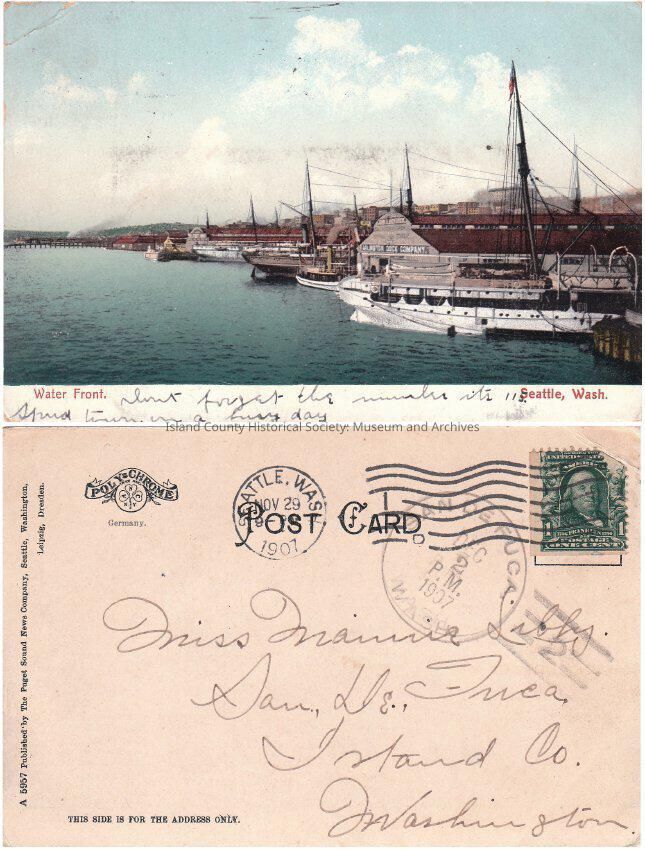 ARLINGTON DOCK COMPANY
Water Front. Dont forget the number its 115 Seattle, Wash.
Spud town on a busy day
Island County Historical Society: Museum and Archives
A 5957 Published by The Puget Sound News Company, Seattle, Washington,
Leipzig, Dresden.
POLY-CHROME
Germany.
SEATTLE, WASH.
NOV 29
1907
POST CARD
SAN DE FUCA.
DEC
2
P.M.
1907
WASH.
UNITED STATES OF AMERICA
POSTAGE
ONE CENT
Miss Mamie Libby.
San, De, Fuca.
Island Co.
Washington.
THIS SIDE IS FOR THE ADDRESS ONLY.